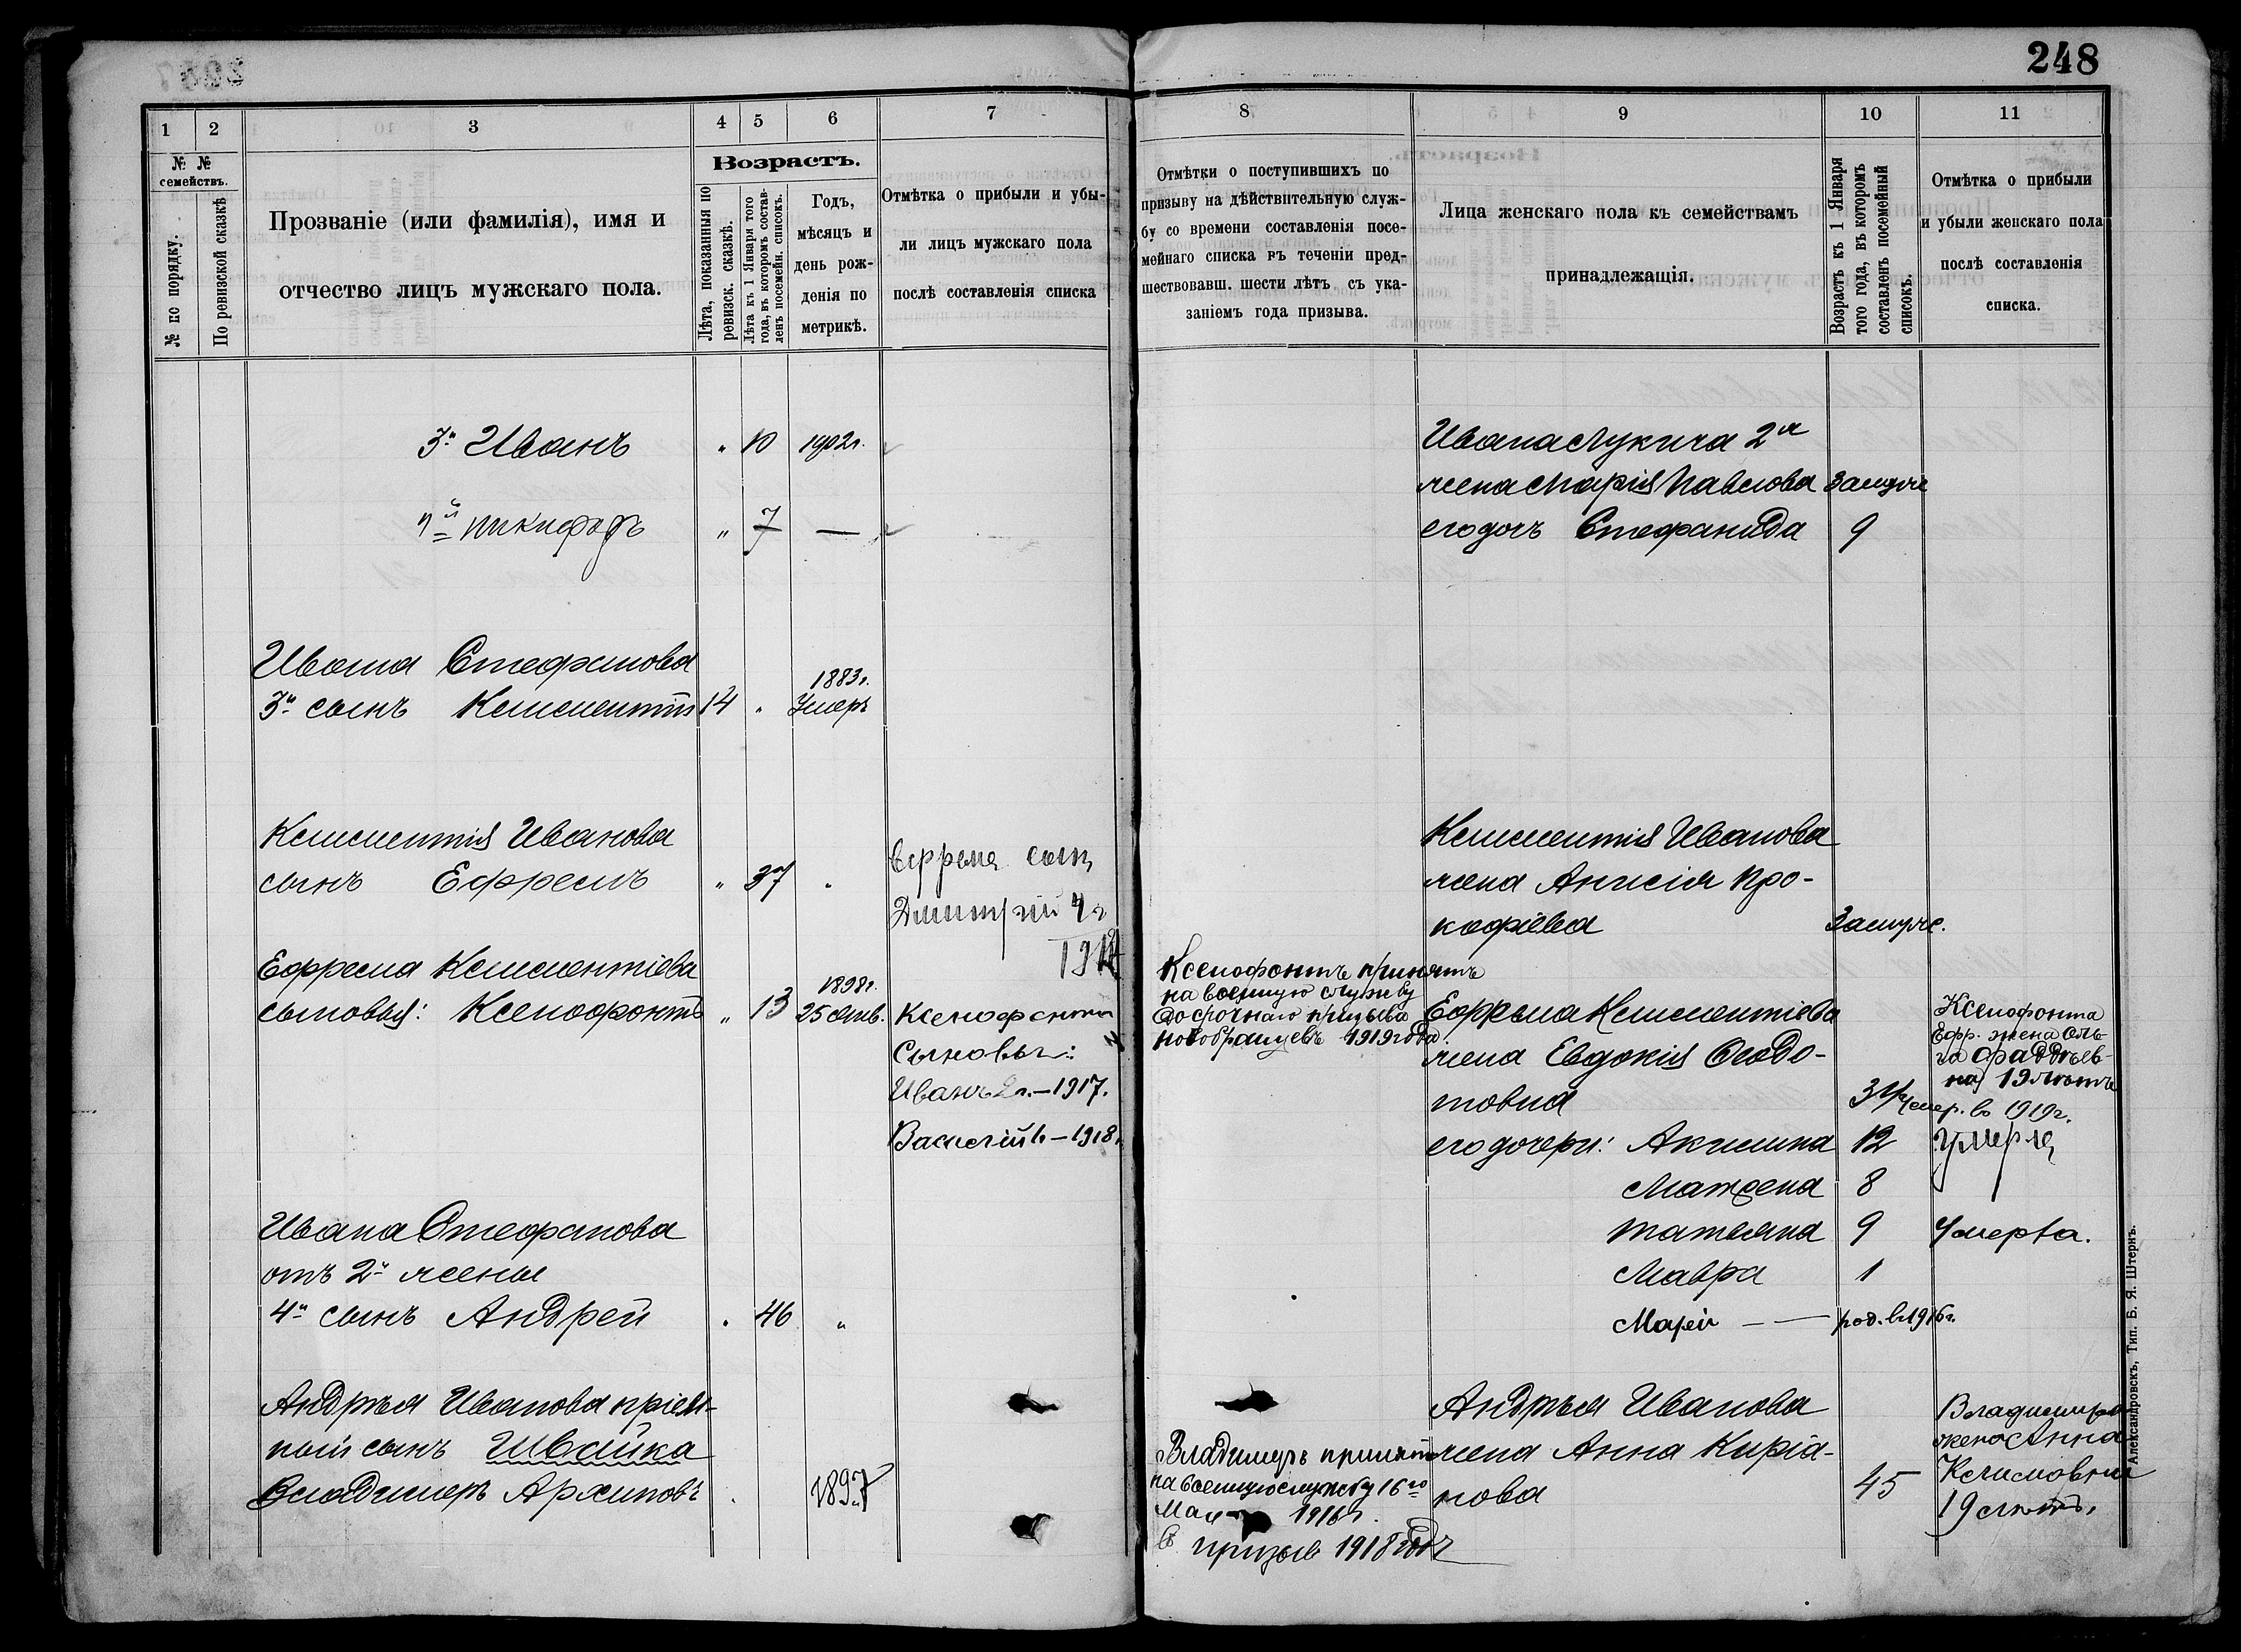 248
1
2
3
4
5
6
7
№ №
семействъ.
№ по порядку.
По ревизской сказкѣ
Прозваніе (или фамилія), имя и
отчество лицъ мужскаго пола.
Возрастъ.
Лѣта, показанныя по
ревизск. сказкѣ.
Лѣта къ 1 Января того
года, въ которомъ состав-
ленъ посемейн. списокъ.
Годъ,
мѣсяцъ и
день рож-
денія по
метрикѣ.
Отмѣтка о прибыли и убы-
ли лицъ мужскаго пола
послѣ составленія списка
3й Иванъ " 10 1902г.
Никифоръ " 7 —
Ивана Стефанова
1883г.
3й сынъ Климентій 14 " Умеръ
Климентія Иванова
сынъ Ефремъ " 37 "
Ефрема сынъ
Дмитрій 4 г
Ефрема Климентіева
1898г.
сыновья: Ксенофонтъ " 13 25 янв.
Ксенофонта
Сыновья:
Иванъ 2л.-1917.
Василій 1-1918
Ивана Стефанова
отъ 2й жены
4й сынъ Андрей " 46 "
Андрея Иванова пріем-
ный сынъ Швайка
Владимеръ Архиповъ " 1897
8
9
10
11
Отмѣтки о поступившихъ по
призыву на дѣйствительную служ-
бу со времени составленія посе-
мейнаго списка въ теченіи пред-
шествовавш. шести лѣтъ съ ука-
заніемъ года призыва.
Лица женскаго пола къ семействамъ
принадлежащія.
Возрастъ къ 1 Января
того года, въ которомъ
составленъ посемейный
списокъ.
Отмѣтка о прибыли
и убыли женскаго пола
послѣ составленія
списка.
Ивана Лукича 2я
жена Марія Павлова Замуже
его дочь Стефанида 9
Климентія Иванова
жена Анисія Про-
кофіева Замуже.
Ксенофонтъ принятъ
на военную службу
досрочнаго призыва
новобранцевъ 1919 года.
Ефрема Климентіева
жена Евдокія Ѳедо-
товна 34
Ксенофонта
Ефр. жена Оль-
га Фаддѣев-
на 19 лѣтъ
умер. в 1919г.
его дочери: Акилина 12 Умерла
Матрена 8
Татьяна 9 Умерла.
Мавра 1
Марія — — род. в 1916г.
Андрея Иванова
жена Анна Киріа-
нова 45
Владимира
жена Анна
Климовна
19 лѣтъ.
Владимиръ принятъ
на военную службу 16го
Мая 1916г.
в призыв 1918 годъ
Александровскъ, Тип. Б. Я. Штернъ.